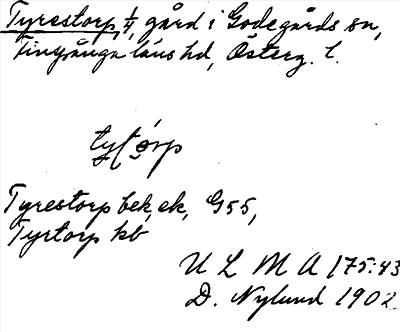 Tyrestorp, 1/4, gård i Godegårds sn,
Finspånga läns hd, Österg. l.
Tyrestorp bek, ek, G55,
Tyrtorp kb
U L M A 175:43
D. Nylund 1902.